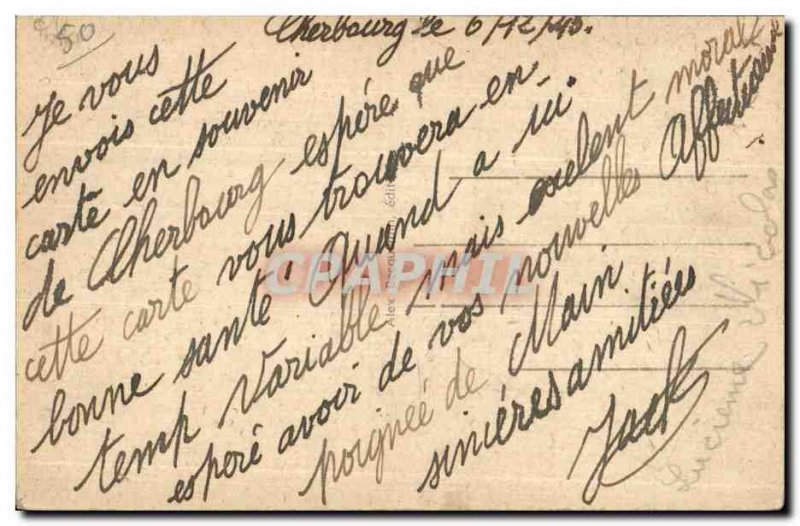 50
Cherbourg le 6/12/45.
Je vous
envois cette
carte en souvenir
de Cherbourg espére que
cette carte vous trouvera en
bonne santé Quand a ui.
temp Variable mais exelent moral
espére avoir de vos nouvelles Affectueux
poignée de Main
sinières amitiées
Jack
CPAPHIL
Lucienne Nicolas